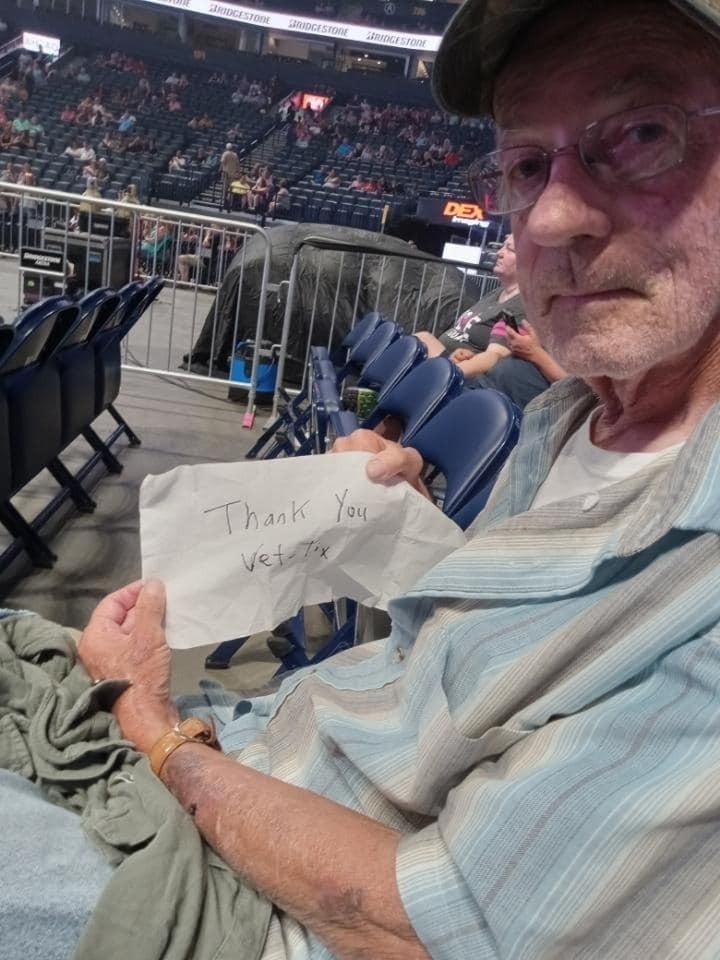 BRIDGESTONE BRIDGESTONE BRIDGESTONE
DEX
BRIDGESTONE
Thank You
Vet-Tix